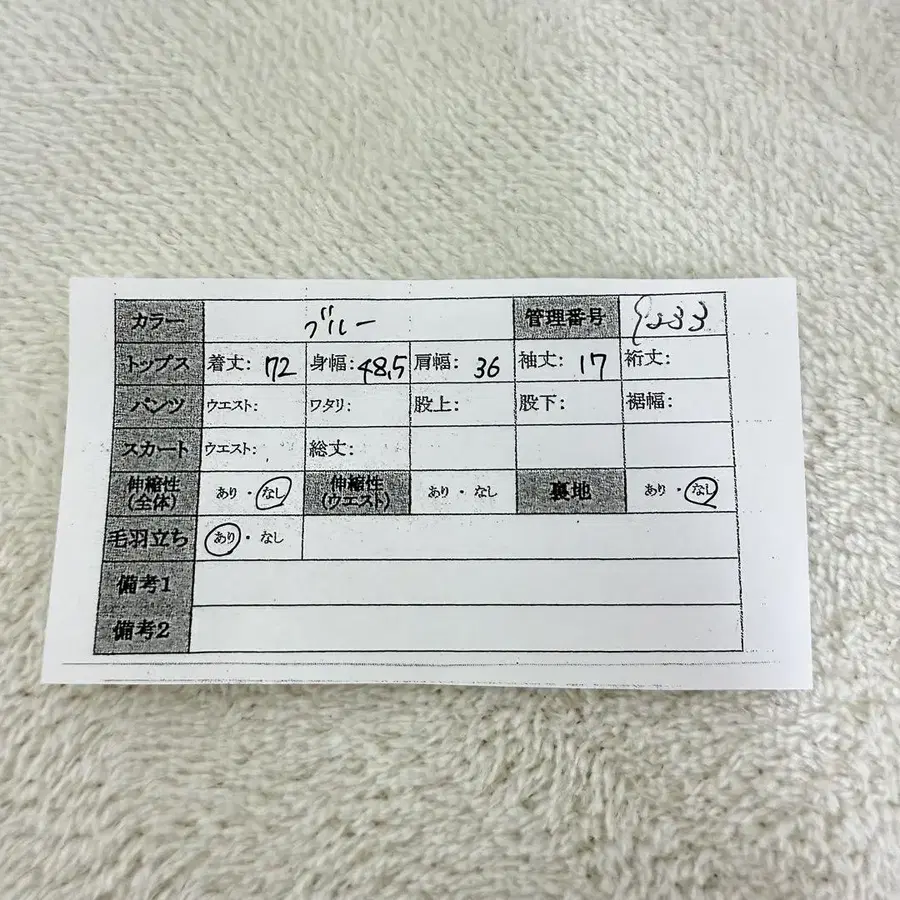 カラー ブルー 管理番号 9233
トップス 着丈: 72 身幅: 48,5 肩幅: 36 袖丈: 17 裄丈:
パンツ ウエスト: ワタリ: 股上: 股下: 裾幅:
スカート ウエスト: 総丈:
伸縮性 (全体) あり・なし 伸縮性 (ウエスト) あり・なし 裏地 あり・なし
毛羽立ち あり・なし
備考1
備考2